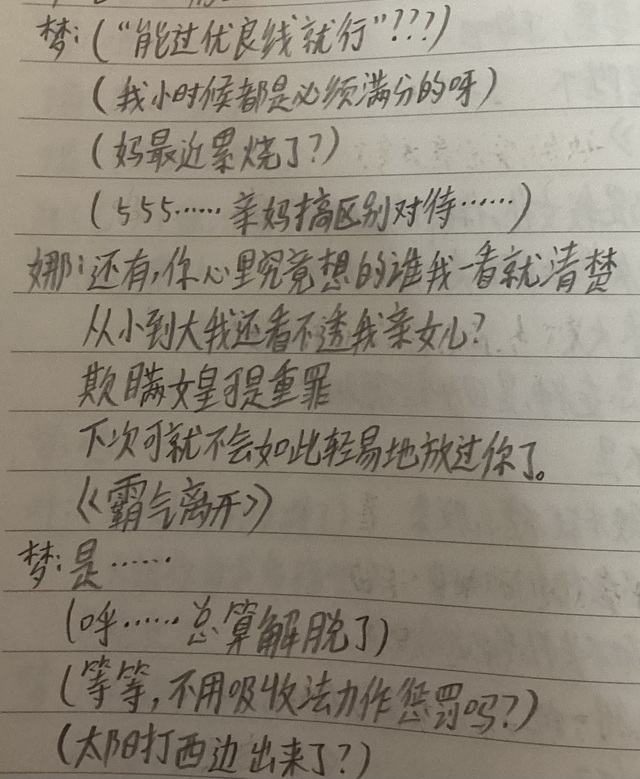 梦:(“能过优良线就行”???)
(我小时候都是必须满分的呀)
(妈最近累烧了?)
(555……亲妈搞区别对待……)
娜:还有,你心里究竟想的谁我一看就清楚
从小到大我还看不透我亲女儿?
欺瞒女皇可是重罪
下次可就不会如此轻易地放过你了。
《霸气离开》
梦:是……
(呼……总算解脱了)
(等等,不用吸收法力作惩罚吗?)
(太阳打西边出来了?)